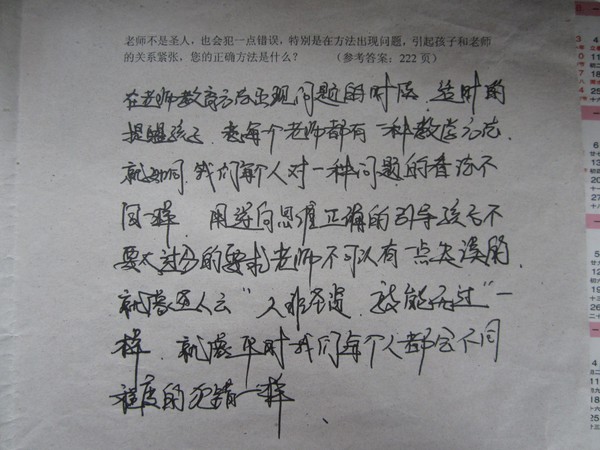 老师不是圣人，也会犯一点错误，特别是在方法出现问题，引起孩子和老师
的关系紧张，您的正确方法是什么？（参考答案：222 页）
在老师教育方法出现问题的时候，适时的
提醒孩子，每个老师都有一种教学方法，
就如同我们每个人对一种问题的看法不
同一样，用逆向思维正确的引导孩子不
要太过分的要求老师不可以有一点失误的，
就像圣人云“人非圣贤，孰能无过”一
样，就像平时我们每个人都会不同
程度的犯错一样